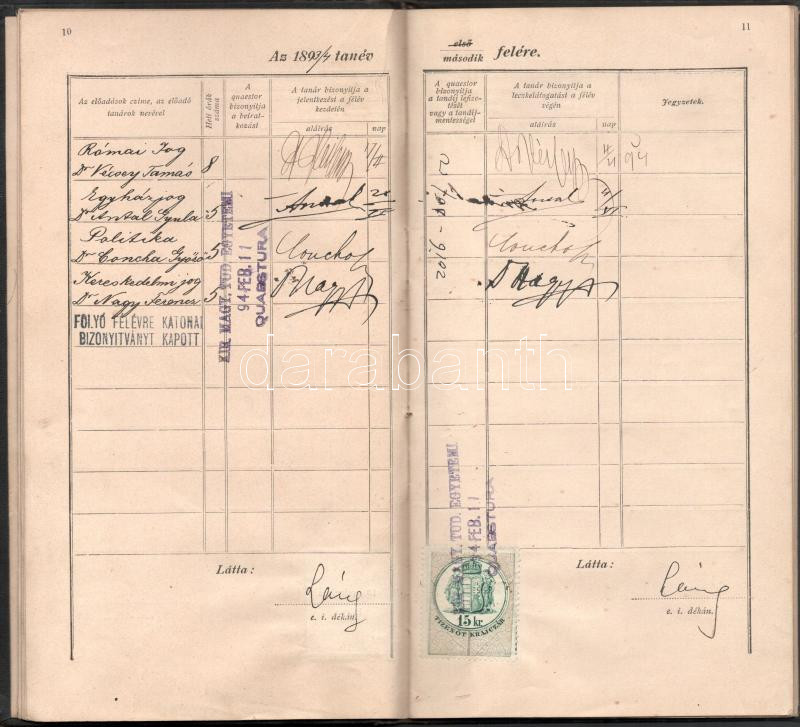 10
Az 1893/4 tanév
Az előadások czime, az előadó
tanárok nevével
Heti órák
száma
A
quaestor
bizonyitja
a beirat-
kozást
A tanár bizonyitja a
jelentkezést a félév
kezdetén
aláirás
nap
Római Jog
Dr Vécsey Tamás 8
Egyházjog
Dr Antal Gyula 5
Antal
Politika
Dr Concha Győző 5
Concha
Kereskedelmi jog
Dr Nagy Ferencz 5
Dr Nagy
FOLYÓ FÉLÉVRE KATONAI
BIZONYITVÁNYT KAPOTT
KIR. MAGY. TUD. EGYETEMI
94 FEB. 11
QUAESTURA
Látta:
Láng
e. i. dékán.
11
első
második felére.
A quaestor
bizonyitja
a tandij lefize-
tését
vagy a tandij-
mentességet
A tanár bizonyitja a
leczkelátogatást a félév
végén
aláirás
nap
Jegyzetek.
94
Antal
Concha
Dr Nagy
KIR. MAGY. TUD. EGYETEMI
94 FEB. 11
QUAESTURA
15 kr.
TIZENÖT KRAJCZÁR
Látta:
Láng
e. i. dékán.
darabanth